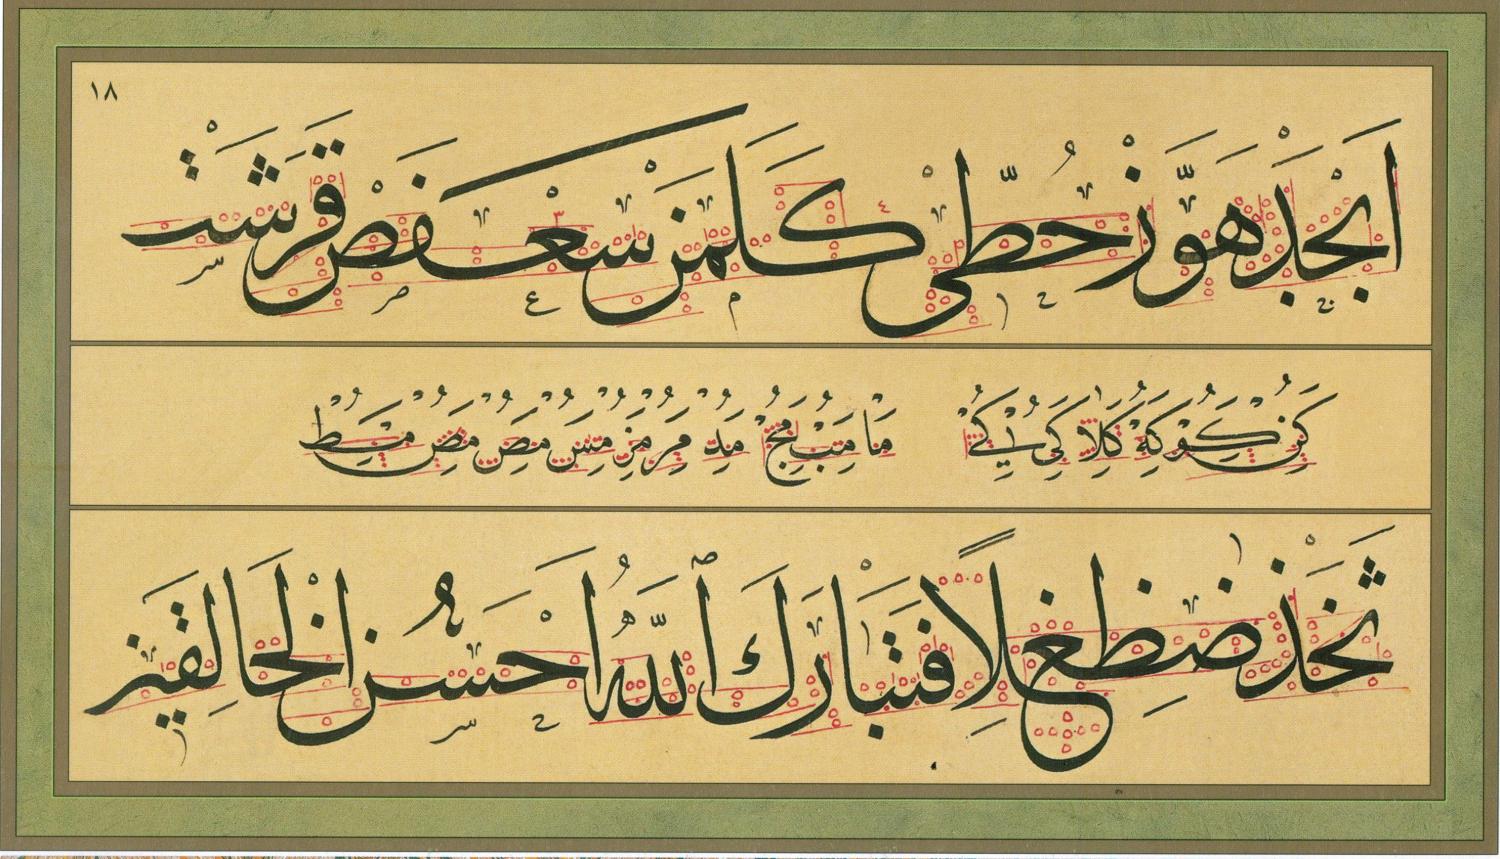 ١٨
ابجد هوّز حطّي كلمن سعفص قرشت
كن كو كه كلا كي كے ما مب مج مد مر مز مس مص مض مط
ثخذ ضظغلا فتبارك الله احسن الخالقين